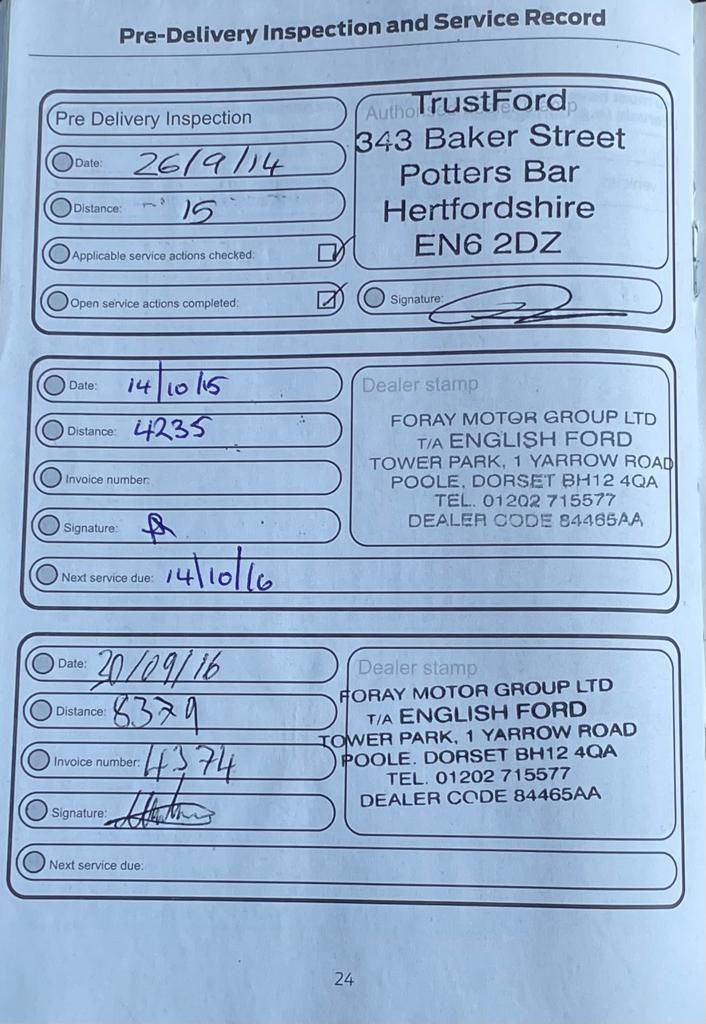 Pre-Delivery Inspection and Service Record
Pre Delivery Inspection
Date: 26/9/14
Distance: 15
Applicable service actions checked:
Open service actions completed:
TrustFord
343 Baker Street
Potters Bar
Hertfordshire
EN6 2DZ
Signature:
Date: 14/10/15
Distance: 4235
Invoice number:
Signature:
Next service due: 14/10/16
Dealer stamp
FORAY MOTOR GROUP LTD
T/A ENGLISH FORD
TOWER PARK, 1 YARROW ROAD
POOLE, DORSET BH12 4QA
TEL. 01202 715577
DEALER CODE 84465AA
Date: 20/09/16
Distance: 8379
Invoice number: 4374
Signature:
Next service due:
Dealer stamp
FORAY MOTOR GROUP LTD
T/A ENGLISH FORD
TOWER PARK, 1 YARROW ROAD
POOLE. DORSET BH12 4QA
TEL. 01202 715577
DEALER CODE 84465AA
24